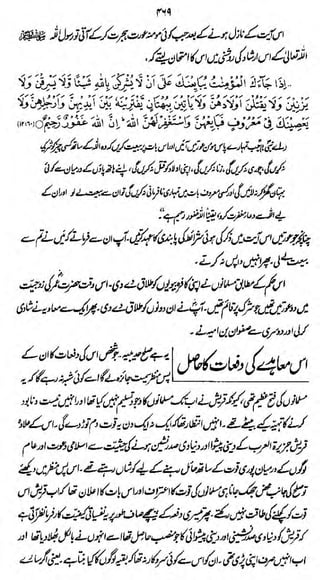 ۴۶۹
اس آیت کے نازل ہونے کے بعد جب کوئی مومنہ عورت ہجرت کرکے آتی تو رسول اللہ ﷺ
اللہ تعالیٰ کے اس ارشاد کی روشنی میں اس کا امتحان لیتے کہ،
إِذَا جَاءَكَ الْمُؤْمِنَاتُ يُبَايِعْنَكَ عَلَى أَنْ لَا يُشْرِكْنَ بِاللَّهِ شَيْئًا وَلَا يَسْرِقْنَ وَلَا
يَزْنِينَ وَلَا يَقْتُلْنَ أَوْلَادَهُنَّ وَلَا يَأْتِينَ بِبُهْتَانٍ يَفْتَرِينَهُ بَيْنَ أَيْدِيهِنَّ وَأَرْجُلِهِنَّ وَلَا
يَعْصِينَكَ فِي مَعْرُوفٍ فَبَايِعْهُنَّ وَاسْتَغْفِرْ لَهُنَّ اللَّهَ إِنَّ اللَّهَ غَفُورٌ رَحِيمٌ (۱۲:۶۰)
(اے نبی) جب تمہارے پاس مومن عورتیں آئیں اور اس بات پر بیعت کریں کہ وہ اللہ کے ساتھ کسی چیز کو شریک
نہ کریں گی، چوری نہ کریں گی، زنا نہ کریں گی، اپنی اولاد کو قتل نہ کریں گی، اپنے ہاتھ پاؤں کے درمیان سے کوئی
بہتان گھڑ کر نہ لائیں گی اور کسی معروف بات میں تمہاری نافرمانی نہ کریں گی تو ان سے بیعت لے لو اور ان کے
لیے اللہ سے دعائے مغفرت کرو، یقیناً اللہ غفور رحیم ہے۔"
چنانچہ جو عورتیں اس آیت میں ذکر کی ہوئی شرائط کی پابندی کا عہد کرتیں۔ آپ ان سے فرماتے کہ میں نے تم سے
بیعت لے لی۔ پھر انہیں واپس نہ کرتے۔
اس حکم کے مطابق مسلمانوں نے اپنی کافرہ بیویوں کو طلاق دے دی۔ اس وقت حضرت عمرؓ کی زوجیت
میں دو عورتیں تھیں جو شرک پر قائم تھیں۔ آپؓ نے ان دونوں کو طلاق دے دی۔ پھر ایک سے معاویہ نے شادی
کر لی اور دوسری سے صفوان بن امیہ نے۔
اس معاہدے کی دفعات کا حاصل
یہ ہے صلح حدیبیہ۔ جو شخص اس کی دفعات کا ان کے
پس منظر سمیت جائزہ لے گا اسے کوئی شبہ نہ رہے گا کہ یہ
مسلمانوں کی فتح عظیم تھی، کیونکہ قریش نے اب تک مسلمانوں کا وجود تسلیم نہیں کیا تھا اور انہیں نیست و نابود
کرنے کا تہیہ کیے بیٹھے تھے۔ انہیں انتظار تھا کہ ایک نہ ایک دن یہ قوت دم توڑ دے گی۔ اس کے علاوہ
قریش جزیرۃ العرب کے دینی پیشوا اور دنیاوی صدر نشین ہونے کی حیثیت سے اسلامی دعوت اور عام
لوگوں کے درمیان پوری قوت کے ساتھ حائل رہنے کے لیے کوشاں رہتے تھے۔ اس پس منظر میں دیکھیے
تو صلح کی جانب محض جھک جانا ہی مسلمانوں کی قوت کا اعتراف اور اس بات کا اعلان تھا کہ اب قریش اس
قوت کو کچلنے کی طاقت نہیں رکھتے۔ پھر تیسری دفعہ کے پیچھے صاف طور پر یہ نفسیاتی کیفیت کارفرما نظر آتی ہے
کہ قریش کو دنیاوی صدر نشینی اور دینی پیشوائی کا جو منصب حاصل تھا اسے انہوں نے بالکل بھلا دیا تھا اور
اب انہیں صرف اپنی پڑی تھی۔ ان کو اس سے کوئی سروکار نہ تھا کہ بقیہ لوگوں کا کیا بنتا ہے، یعنی اگر سارے